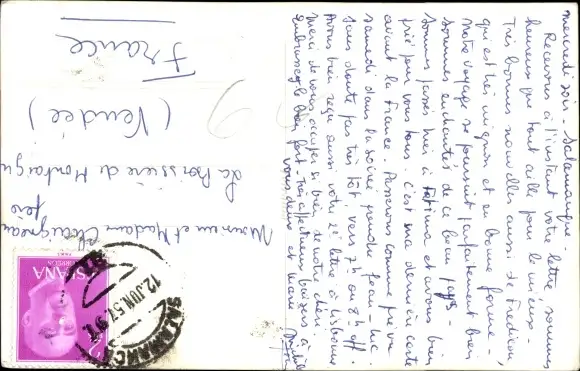 mercredi soir - Salamanque -
Recevons à l'instant votre lettre, sommes
heureux que tout aille pour le mieux -
Très bonnes nouvelles aussi de
qui est très mignon et en bonne forme -
notre voyage se poursuit parfaitement bien
sommes enchantés de ce beau pays -
sommes passés hier à Fatima et avons bien
prié pour vous tous. C'est ma dernière carte
avant la France. Passerons comme prévu
samedi dans la soirée prendre Jean-Luc
sans doute pas très tôt vers 7h ou 8h
Avons bien reçu aussi votre 2e lettre à Lisbonne
merci de vous occuper si bien de notre chéri
Embrassez le bien fort - Très affectueux baisers à
vous deux et
Monsieur et Madame
père
La Boissière de Montaigu
(Vendée)
France
ESPAÑA
CORREOS
SALAMANCA
12.JUN.57.9